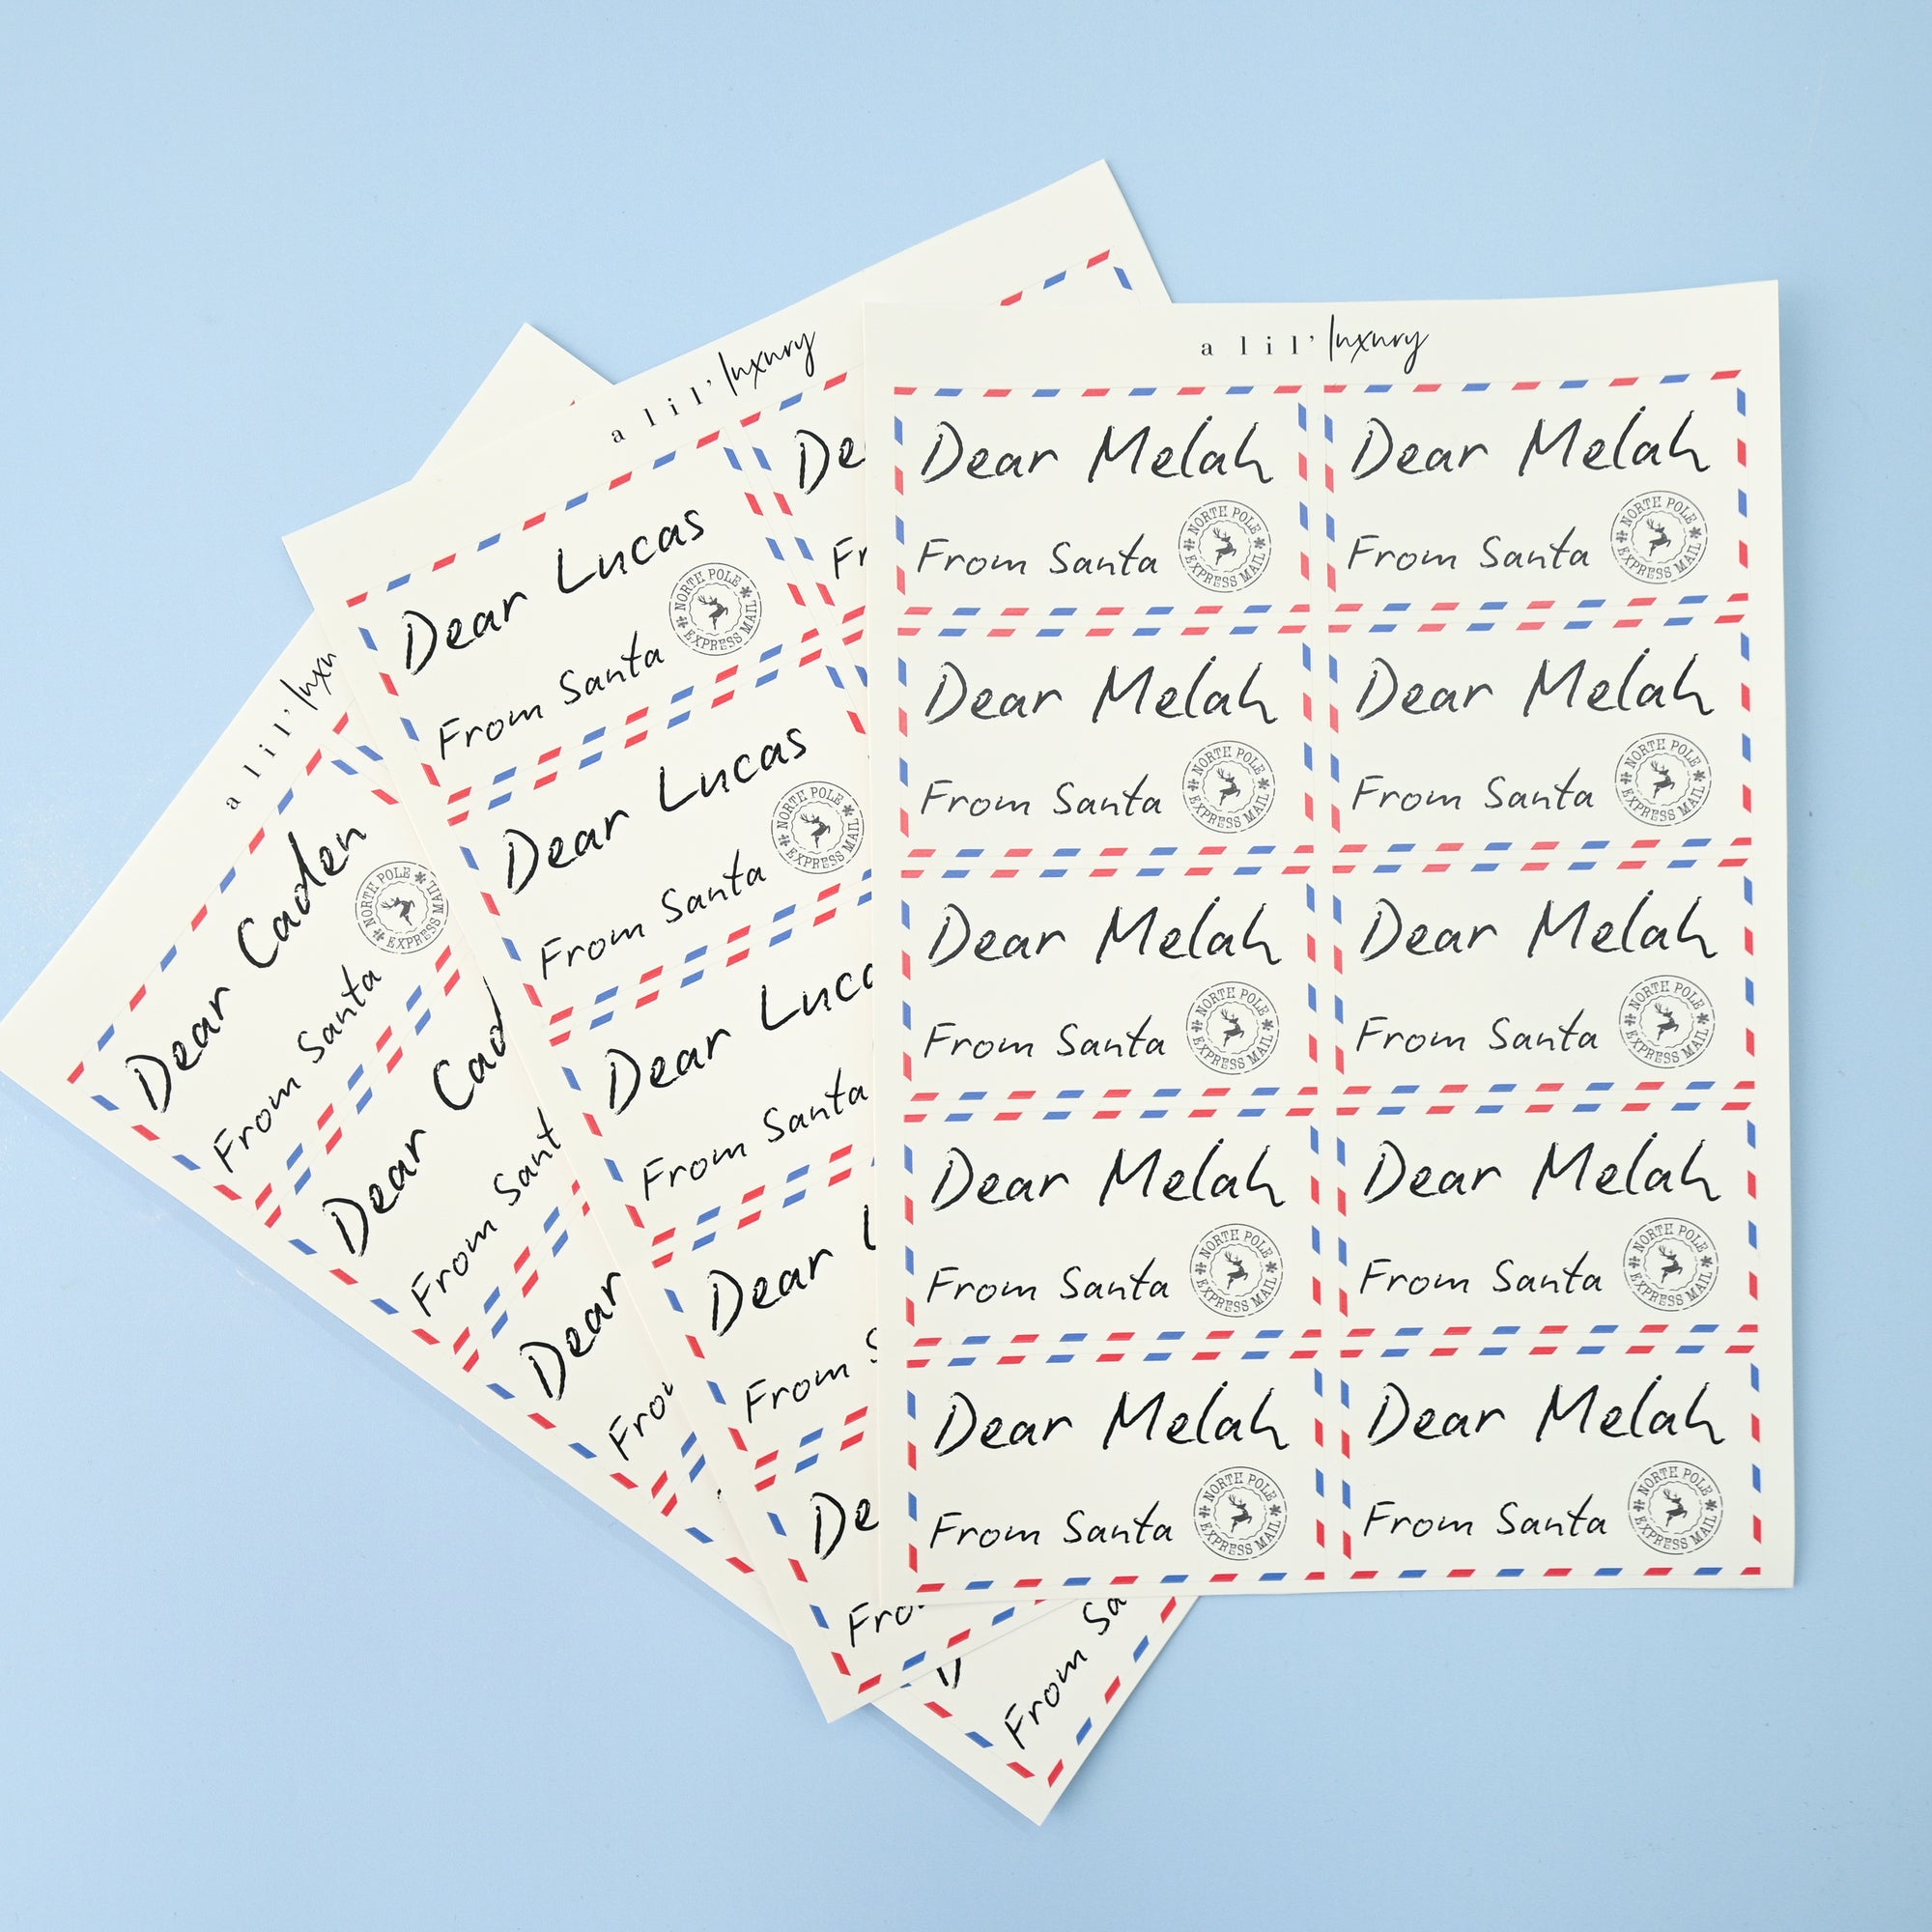 a lil'
Dear Caden
NORTH POLE
EXPRESS MAIL
From Santa
Dear
From
Dear
From
a lil' luxury
Dear Lucas
NORTH POLE
EXPRESS MAIL
From Santa
Dear Lucas
NORTH POLE
EXPRESS MAIL
From Santa
Dear
From Santa
Dear
From
a lil' luxury
Dear Melah
From Santa
NORTH POLE
EXPRESS MAIL
Dear Melah
From Santa
NORTH POLE
EXPRESS MAIL
Dear Melah
From Santa
NORTH POLE
EXPRESS MAIL
Dear Melah
From Santa
NORTH POLE
EXPRESS MAIL
Dear Melah
From Santa
NORTH POLE
EXPRESS MAIL
Dear Melah
From Santa
NORTH POLE
EXPRESS MAIL
Dear Melah
From Santa
NORTH POLE
EXPRESS MAIL
Dear Melah
From Santa
NORTH POLE
EXPRESS MAIL
Dear Melah
From Santa
NORTH POLE
EXPRESS MAIL
Dear Melah
From Santa
NORTH POLE
EXPRESS MAIL